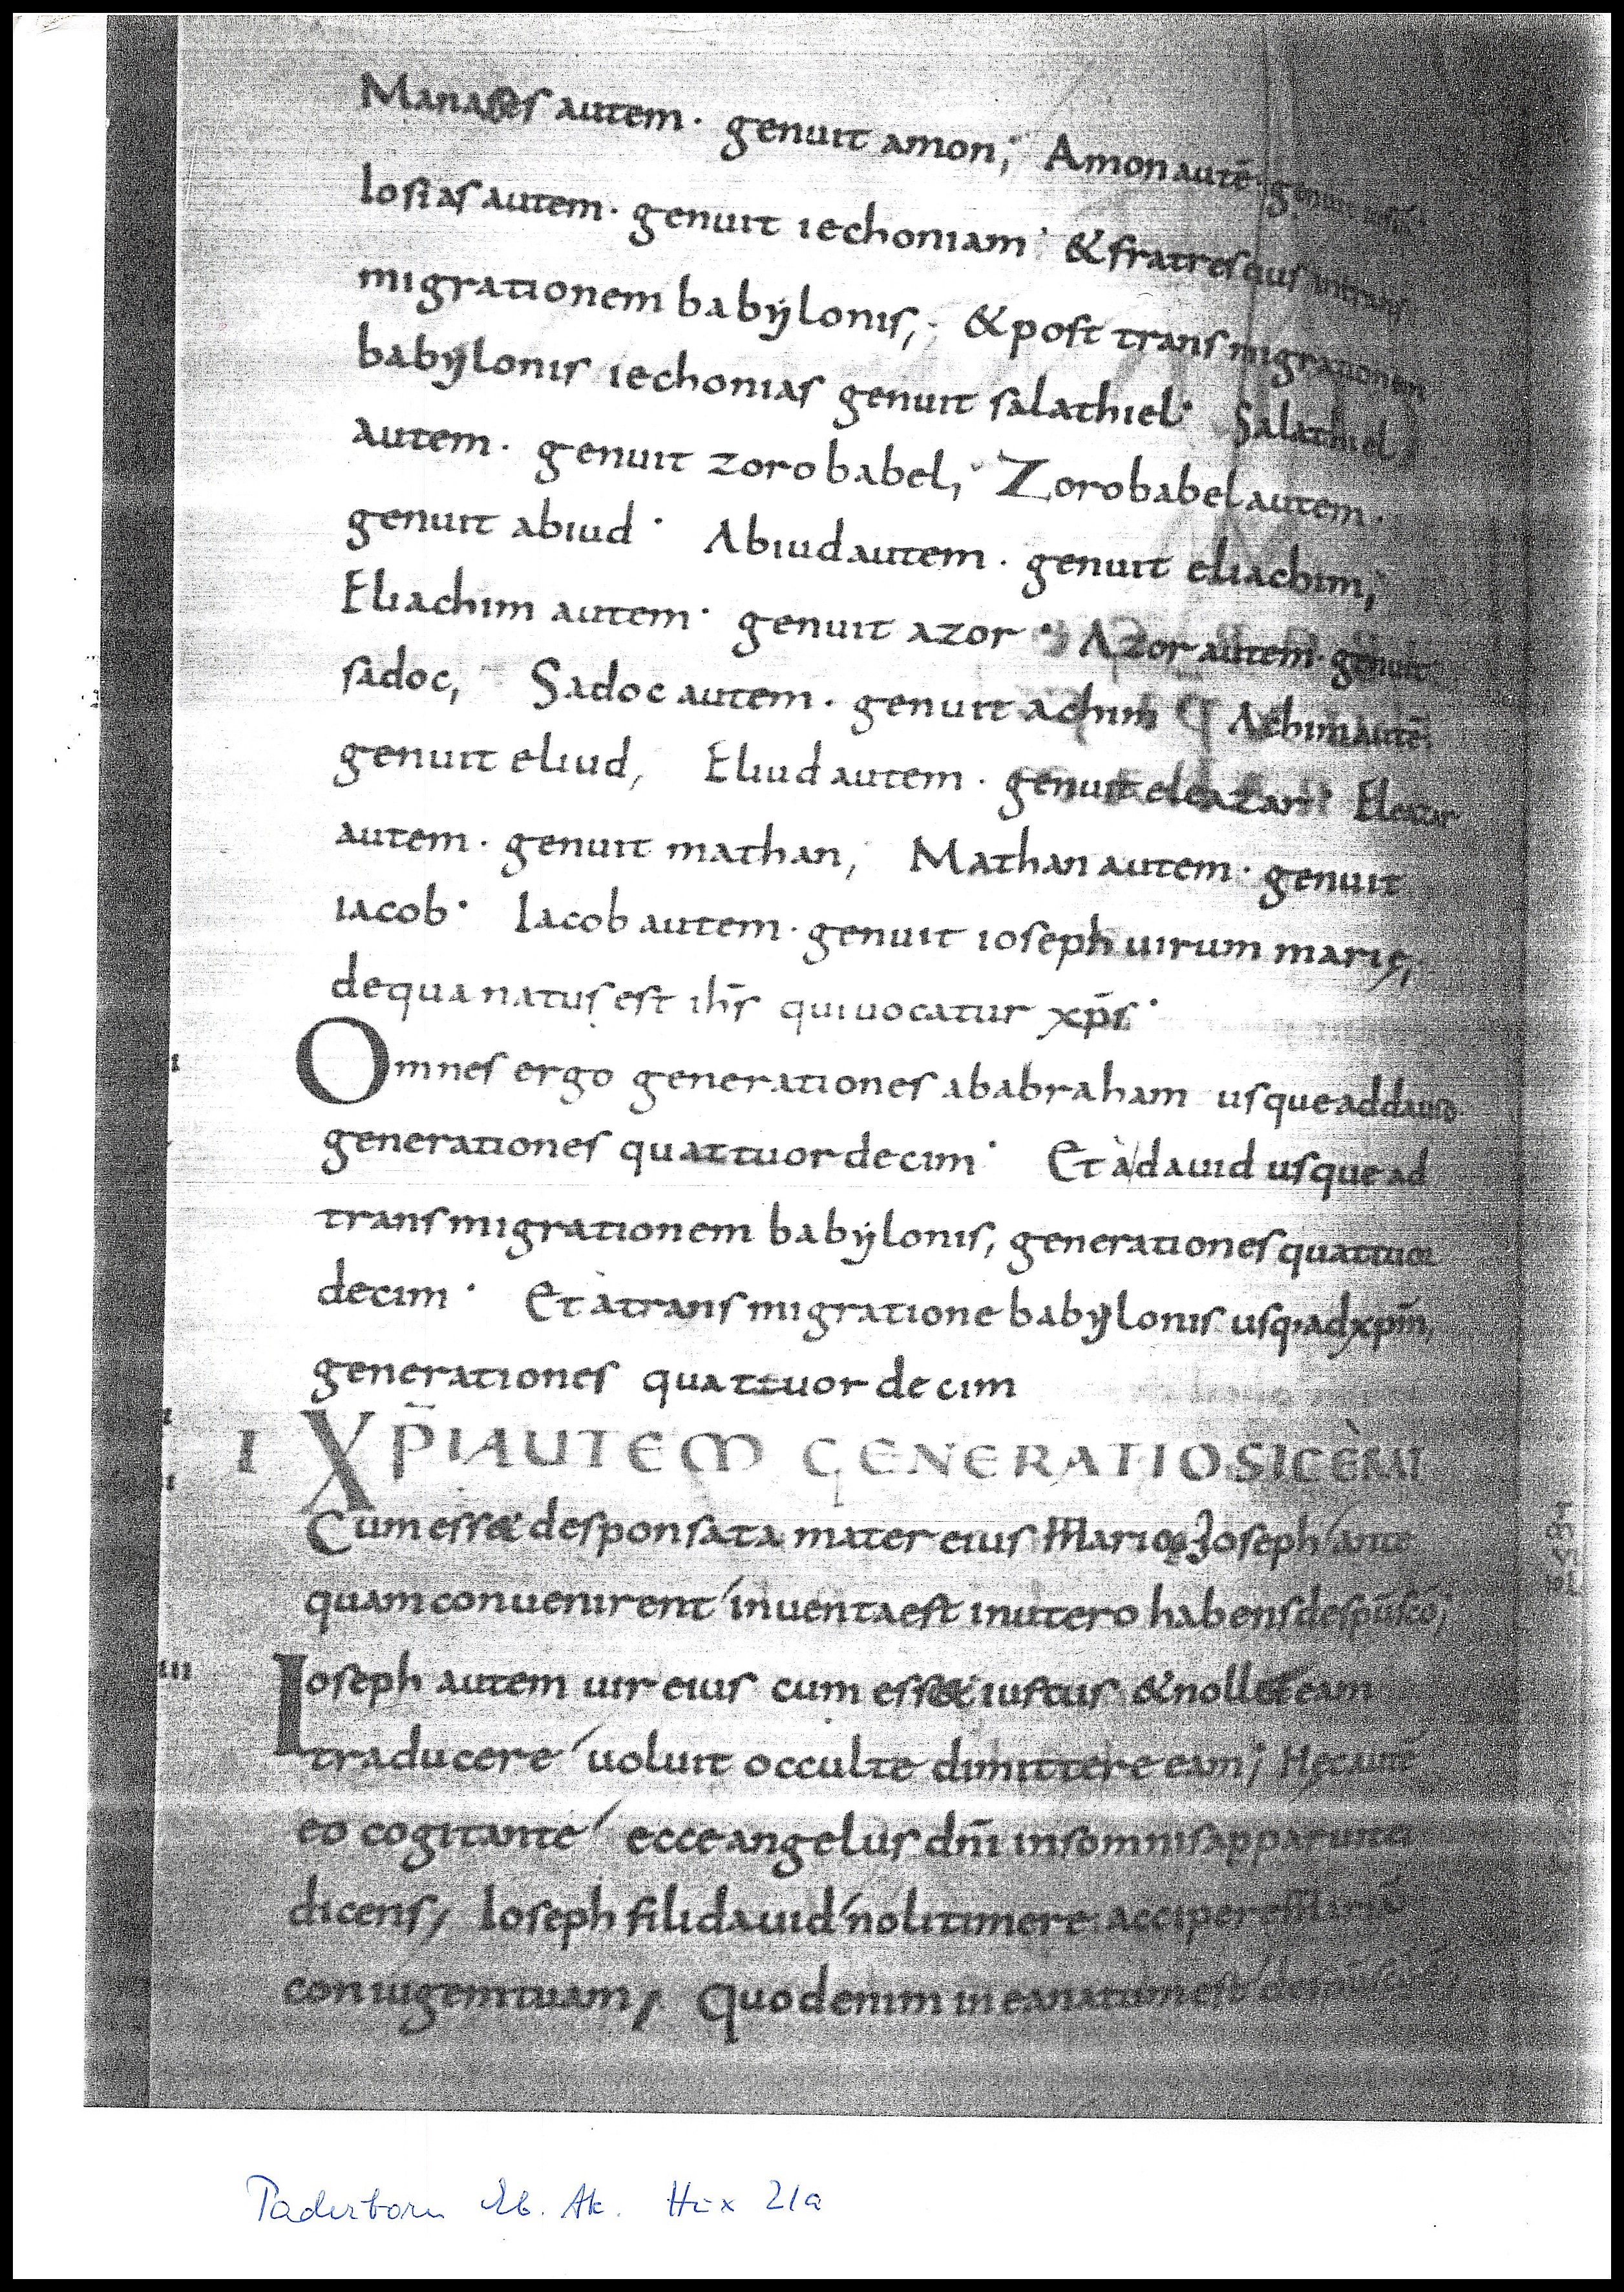 Manasses autem · genuit amon; Amon autē · genuit
Iosias autem · genuit iechoniam · & fratres eius in trans
migrationem babylonis; & post transmigrationem
babylonis iechonias genuit salathiel · Salathiel
autem · genuit zorobabel; Zorobabel autem ·
genuit abiud · Abiud autem · genuit eliachim;
Eliachim autem · genuit azor · Azor autem · genuit
sadoc, Sadoc autem · genuit achim Achim autē
genuit eliud, Eliud autem · genuit eleazar · Eleazar
autem · genuit mathan, Mathan autem · genuit
iacob · Iacob autem · genuit ioseph uirum marię,
de qua natus est ihs̄ qui uocatur xp̄s ·
Omnes ergo generationes ab abraham usque ad dauid
generationes quattuordecim · Et à dauid usque ad
transmigrationem babylonis, generationes quattuor
decim · Et à transmigratione babylonis usq; ad xpm̄,
generationes quattuordecim
I XP̄I AUTEM GENERATIO SIC ERAT
Cum ess& desponsata mater eius Maria Ioseph ante
quam conuenirent inuenta est in utero habens de sp̄u sc̄o;
III Ioseph autem uir eius cum ess& iustus & noll& eam
traducere uoluit occulte dimittere eam; Hęc autē
eo cogitante ecce angelus dn̄i in somnis apparuit ei
dicens, Ioseph fili dauid noli timere accipere Mariā
coniugem tuam, Quod enim in ea natum est de
Paderborn Eb. Ak. Hux 21a